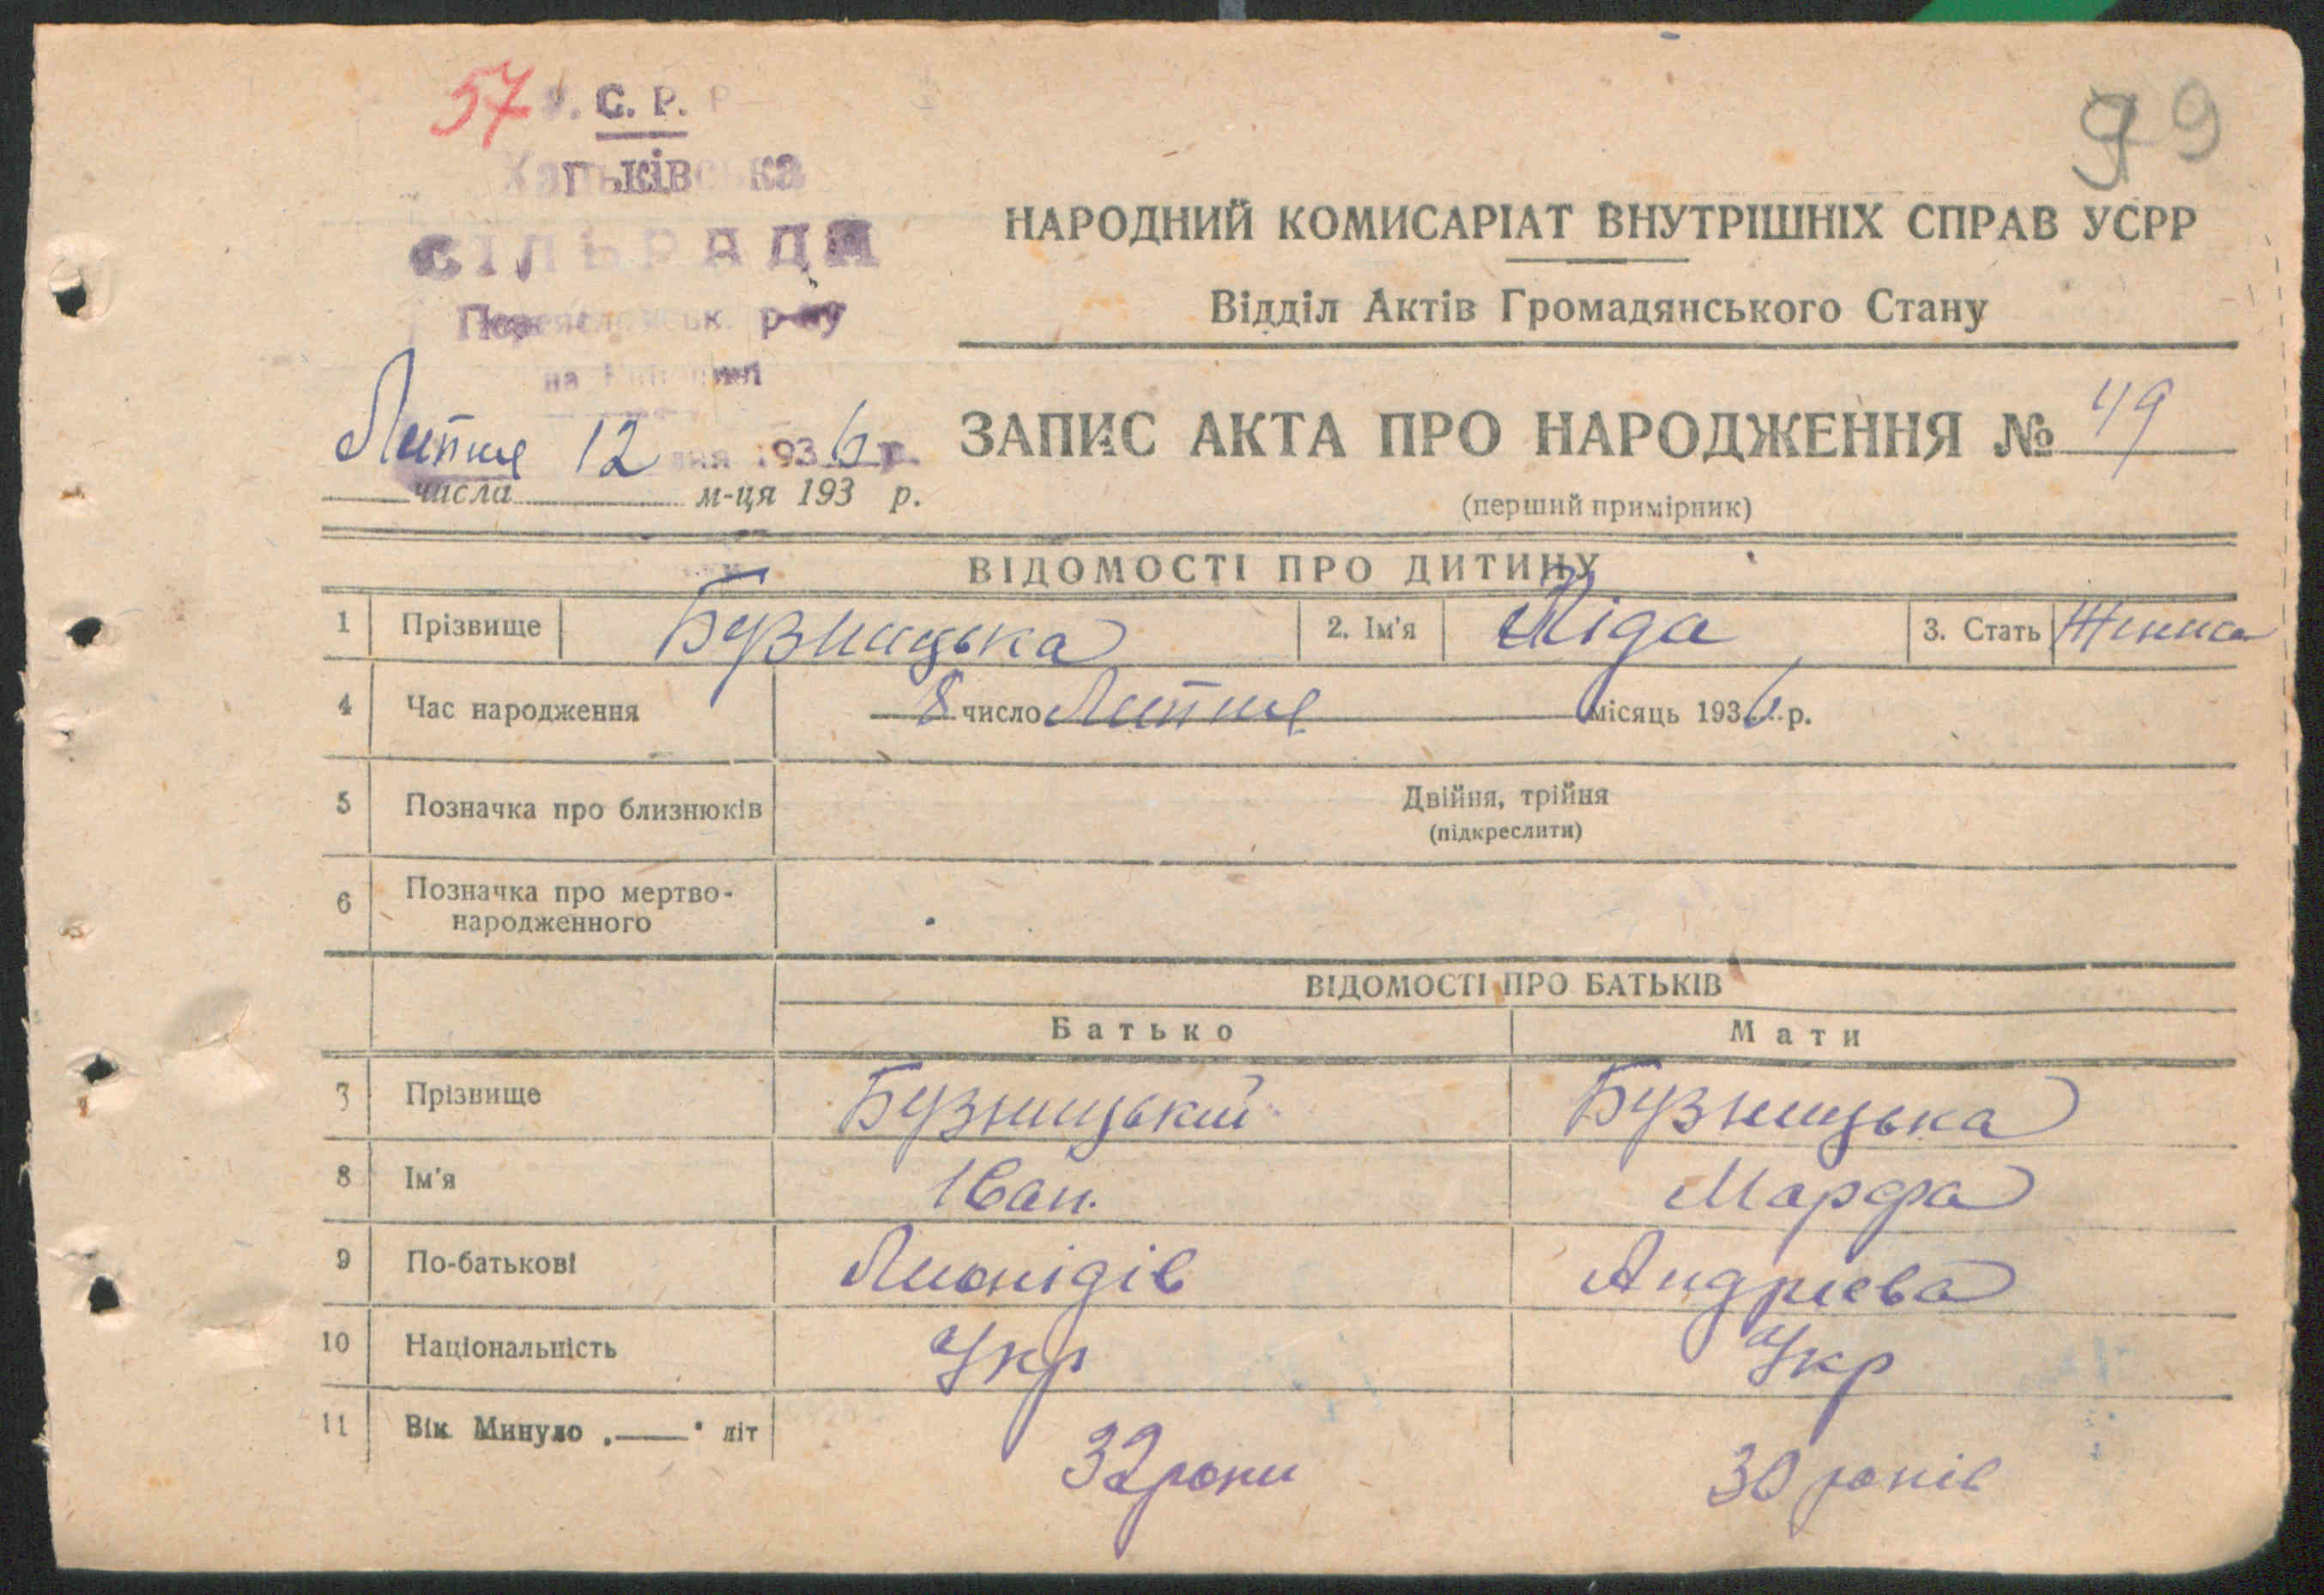 57 У. С. Р. Р
99
Харьківська
СІЛЬРАДА
Переяславськ. р-ну
на Київщині
НАРОДНИЙ КОМИСАРІАТ ВНУТРІШНІХ СПРАВ УСРР
Відділ Актів Громадянського Стану
Липня 12 дня 1936 р.
числа м-ця 193 р.
ЗАПИС АКТА ПРО НАРОДЖЕННЯ № 49
(перший примірник)
ВІДОМОСТІ ПРО ДИТИНУ
1 Прізвище Бузницька 2. Ім'я Ліда 3. Стать Жіноча
4 Час народження 8 число Липня місяць 1936 р.
5 Позначка про близнюків Двійня, трійня
(підкреслити)
6 Позначка про мертво-
народженного
ВІДОМОСТІ ПРО БАТЬКІВ
Батько Мати
7 Прізвище Бузницький Бузницька
8 Ім'я Іван. Марфа
9 По-батькові Лионідів Андрієва
10 Національність Укр Укр
11 Вік Минуло „—“ літ 32 роки 30 років